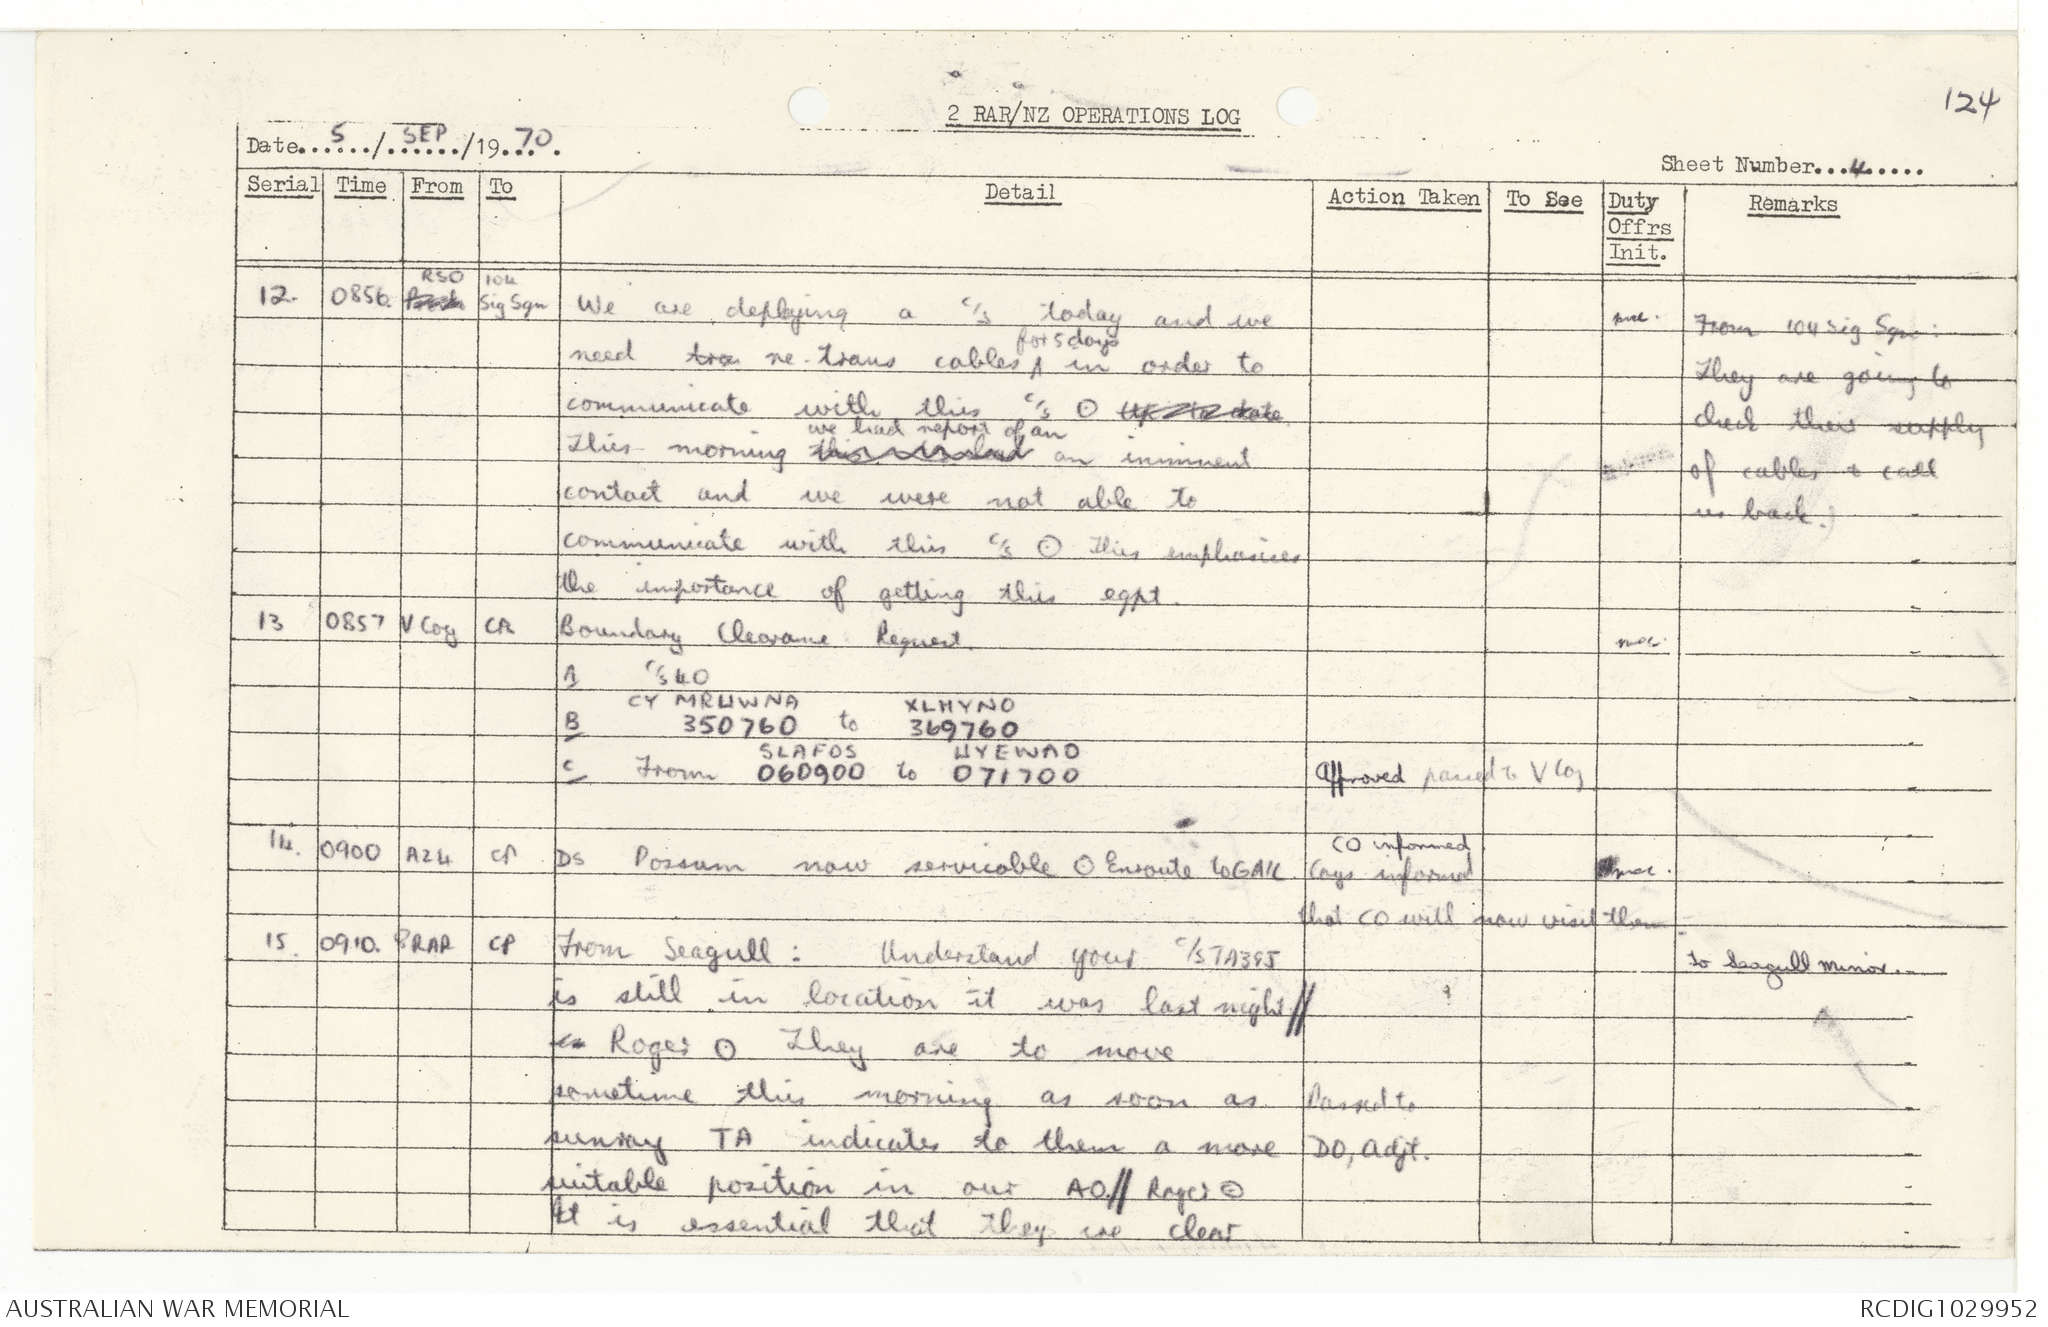 124
2 RAR/NZ OPERATIONS LOG
Date 5 / SEP /1970.
Sheet Number...4.....
Serial Time From To Detail Action Taken To See Duty Offrs Init. Remarks
12. 0856. RSO 104 Sig Sqn We are deploying a c/s today and we
need re-trans cables for 5 days in order to
communicate with this c/s ⊙
This morning we had report of an an imminent
contact and we were not able to
communicate with this c/s ⊙ This emphasises
the importance of getting this eqpt.
From 104 Sig Sqn:
They are going to
check their supply
of cables + call
us back.)
13 0857 V Coy CP Boundary Clearance Request.
A c/s 40
CY MRUWNA XLHYNO
B 350760 to 369760
SLAFOS UYEWAO
C From 060900 to 071700 Approved passed to V Coy
14. 0900 A24 CP DS Possum now servicable ⊙ Enroute to GAIL
CO informed
Coys informed
that CO will now visit them
15. 0910. 8RAR CP From Seagull: Understand your c/s TA395
To Seagull Minor.
is still in location it was last night//
Roger ⊙ They are to move
sometime this morning as soon as Passed to
sunray TA indicates to them a more DO, Adjt.
suitable position in our AO.// Roger ⊙
It is essential that they are clear
AUSTRALIAN WAR MEMORIAL
RCDIG1029952